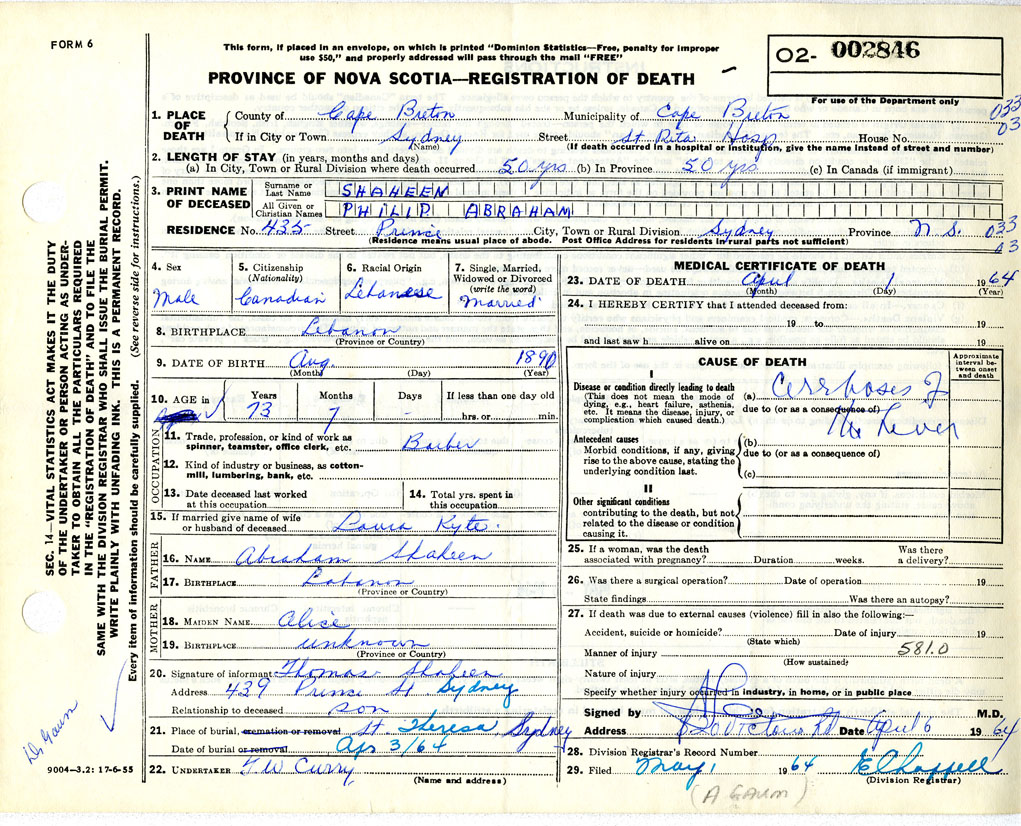 FORM 6
This form, if placed in an envelope, on which is printed "Dominion Statistics—Free, penalty for improper
use $50," and properly addressed will pass through the mail "FREE"
02- 002846
PROVINCE OF NOVA SCOTIA—REGISTRATION OF DEATH
For use of the Department only
1. PLACE OF DEATH County of Cape Breton Municipality of Cape Breton 033
If in City or Town Sydney Street St Rita Hosp House No. 03
(Name) (If death occurred in a hospital or institution, give the name instead of street and number)
2. LENGTH OF STAY (in years, months and days)
(a) In City, Town or Rural Division where death occurred 50 yrs (b) In Province 50 yrs (c) In Canada (if immigrant)
3. PRINT NAME OF DECEASED Surname or Last Name SHAHEEN
All Given or Christian Names PHILIP ABRAHAM
RESIDENCE No. 435 Street Prince City, Town or Rural Division Sydney Province N S. 033
(Residence means usual place of abode. Post Office Address for residents in rural parts not sufficient) 03
4. Sex Male
5. Citizenship (Nationality) Canadian
6. Racial Origin Lebanese
7. Single, Married, Widowed or Divorced (write the word) Married
8. BIRTHPLACE Lebanon
(Province or Country)
9. DATE OF BIRTH Aug. 1890
(Month) (Day) (Year)
10. AGE in Years Months Days If less than one day old
73 7 - hrs. or min.
OCCUPATION
11. Trade, profession, or kind of work as
spinner, teamster, office clerk, etc. Barber
12. Kind of industry or business, as cotton-
mill, lumbering, bank, etc.
13. Date deceased last worked
at this occupation
14. Total yrs. spent in
this occupation
15. If married give name of wife
or husband of deceased Kyte
FATHER
16. NAME Abraham Shaheen
17. BIRTHPLACE Lebanon
(Province or Country)
MOTHER
18. MAIDEN NAME Alice
19. BIRTHPLACE unknown
(Province or Country)
20. Signature of informant Thomas Shaheen
Address 439 Prince St Sydney
Relationship to deceased son
21. Place of burial, cremation or removal St. Theresa Sydney
Date of burial or removal Apr 3/64
22. UNDERTAKER T W Curry
(Name and address)
MEDICAL CERTIFICATE OF DEATH
23. DATE OF DEATH April 1 1964
(Month) (Day) (Year)
24. I HEREBY CERTIFY that I attended deceased from:
19 to 19
and last saw h alive on 19
CAUSE OF DEATH
Approximate interval between onset and death
I
Disease or condition directly leading to death
(This does not mean the mode of
dying, e.g., heart failure, asthenia,
etc. It means the disease, injury, or
complication which caused death.)
(a) Cerrhoses of
due to (or as a consequence of)
the Liver
Antecedent causes
Morbid conditions, if any, giving
rise to the above cause, stating the
underlying condition last.
(b)
due to (or as a consequence of)
(c)
II
Other significant conditions
contributing to the death, but not
related to the disease or condition
causing it.
25. If a woman, was the death
associated with pregnancy? Duration weeks. Was there a delivery?
26. Was there a surgical operation? Date of operation 19
State findings Was there an autopsy?
27. If death was due to external causes (violence) fill in also the following:—
Accident, suicide or homicide? Date of injury 19
(State which)
Manner of injury 581.0
(How sustained)
Nature of injury
Specify whether injury occurred in industry, in home, or in public place
Signed by M.D.
Address Date April 6 1964
28. Division Registrar's Record Number
29. Filed May 1 1964 E Chappell
(Division Registrar)
(A GAUM)
SEC. 14—VITAL STATISTICS ACT MAKES IT THE DUTY
OF THE UNDERTAKER OR PERSON ACTING AS UNDER-
TAKER TO OBTAIN ALL THE PARTICULARS REQUIRED
IN THE "REGISTRATION OF DEATH" AND TO FILE THE
SAME WITH THE DIVISION REGISTRAR WHO SHALL ISSUE THE BURIAL PERMIT.
WRITE PLAINLY WITH UNFADING INK. THIS IS A PERMANENT RECORD.
Every item of information should be carefully supplied. (See reverse side for instructions.)
D. Gaum
9004—3.2: 17-6-55